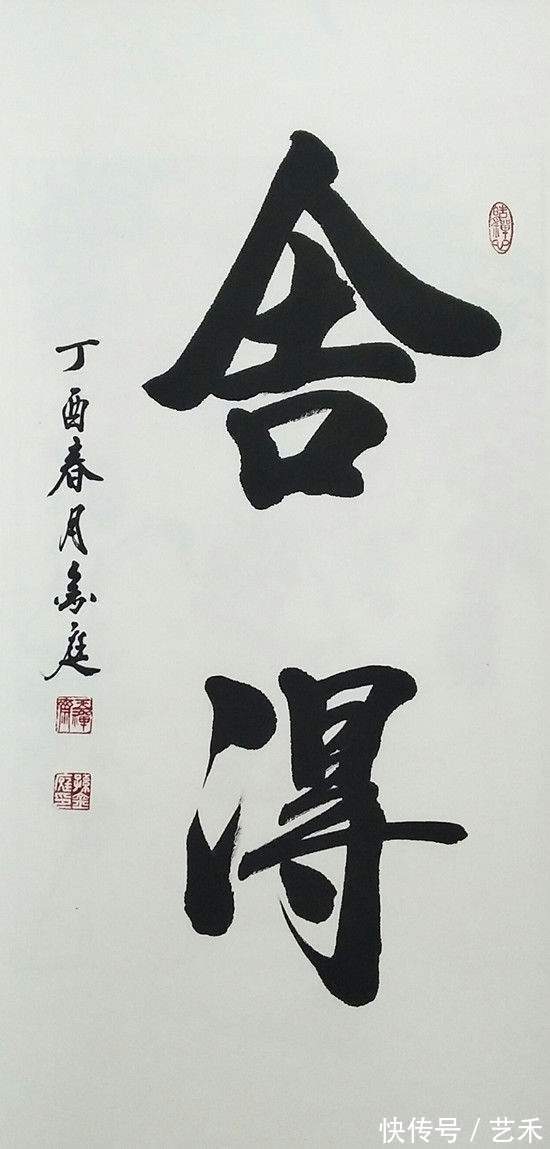 舍得
丁酉春月金庭
快传号 / 艺禾